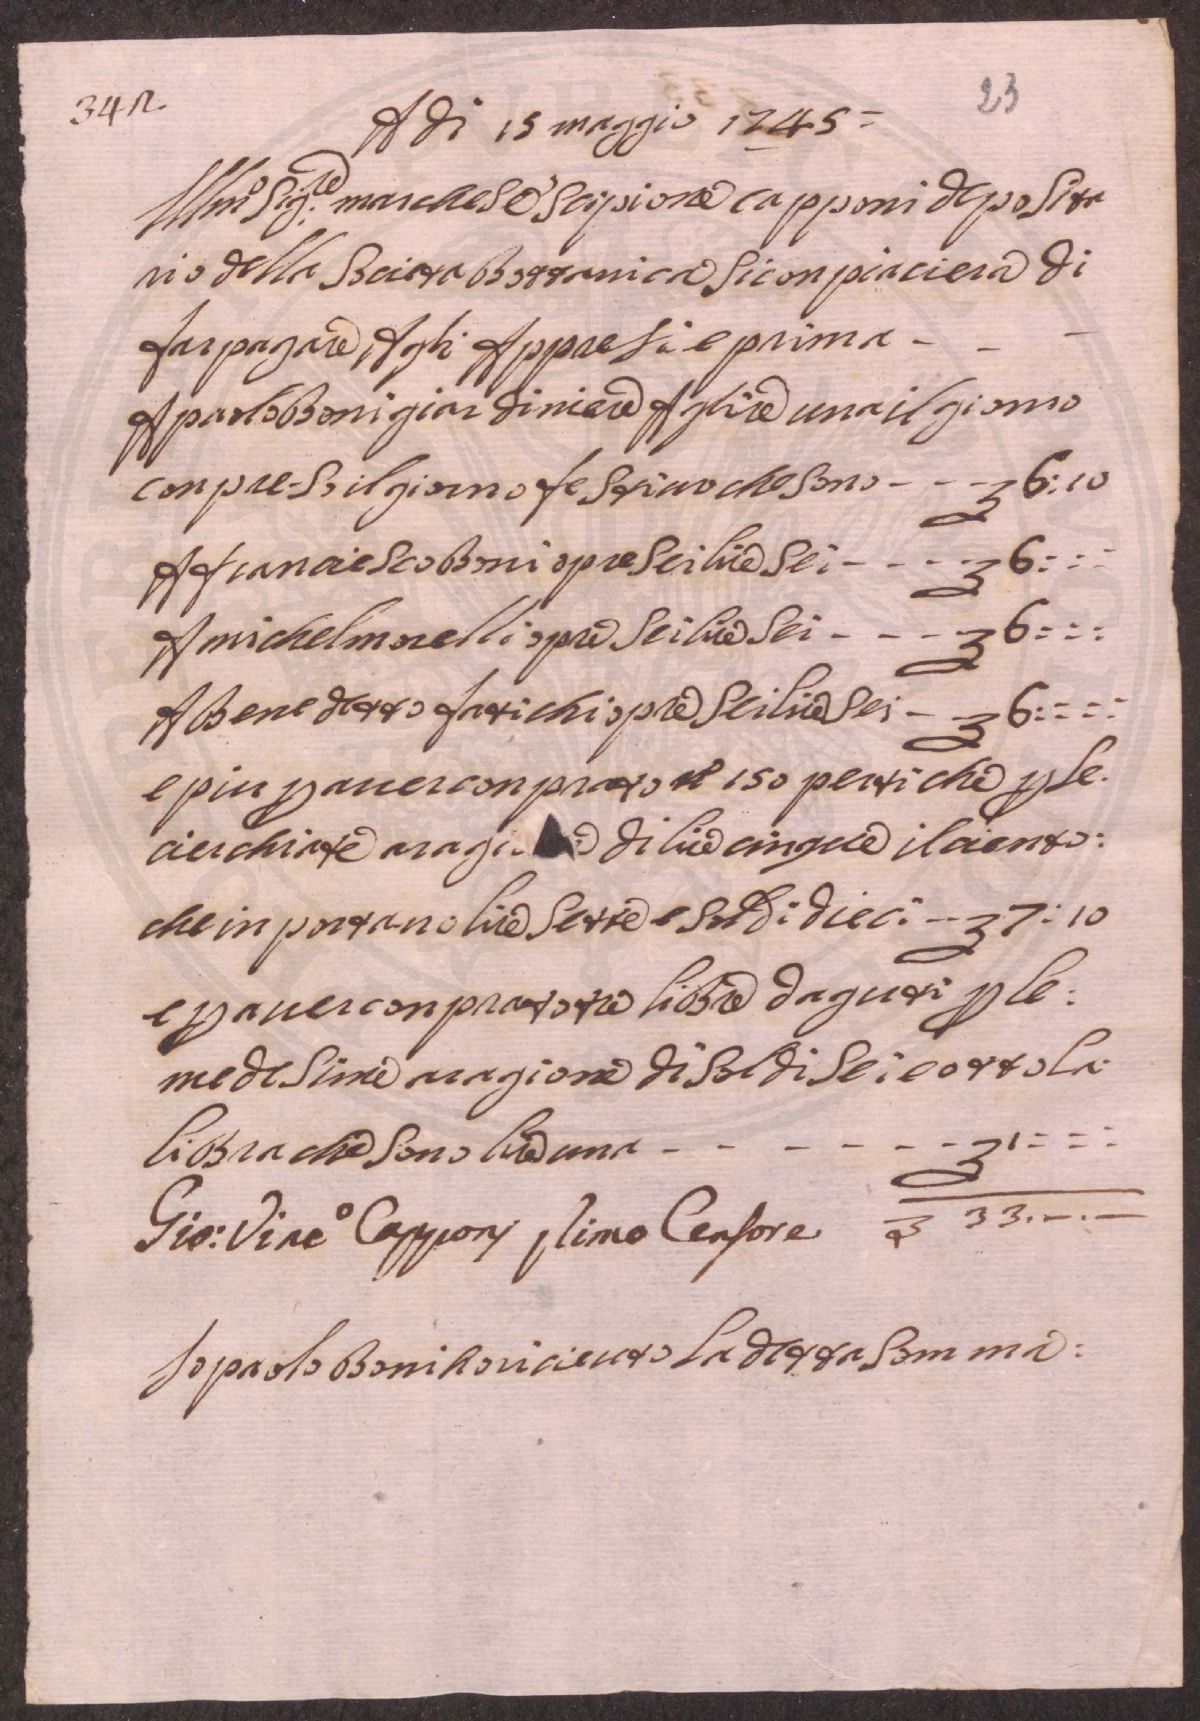 34 r.
23
A di 15 maggio 1745=
Illmo Sig.re marchese Scipione capponi deposita
rio della Societa Bottanica Si conpiaciera di
far pagare Agli Appresi e prima - - -
A paolo Boni giardiniere A lire una il giorno
conpreso il giorno festivo che Sono - - - 6:10
A franciesco Boni opre Sei lire Sei - - - - 6:::
A michel morelli opre Sei lire Sei - - - - 6:::
A Benedetto fatichi opre Sei lire Sei - - 6::::
e piu p aver conprato n 150 pertiche p le
cierchiate a ragi e di lire cinque il ciento:
che inportano lire Sette e Soldi dieci -- 7:10
e p aver conprato tre libre d aguti p le:
medesime a ragione di Soldi Sei e otto la
libra che Sono lire una - - - - - - - 1:::
Gio: Vinc.o Capponi Censore 33.-.-
Io paolo Boni ho riceuto la detta Somma: